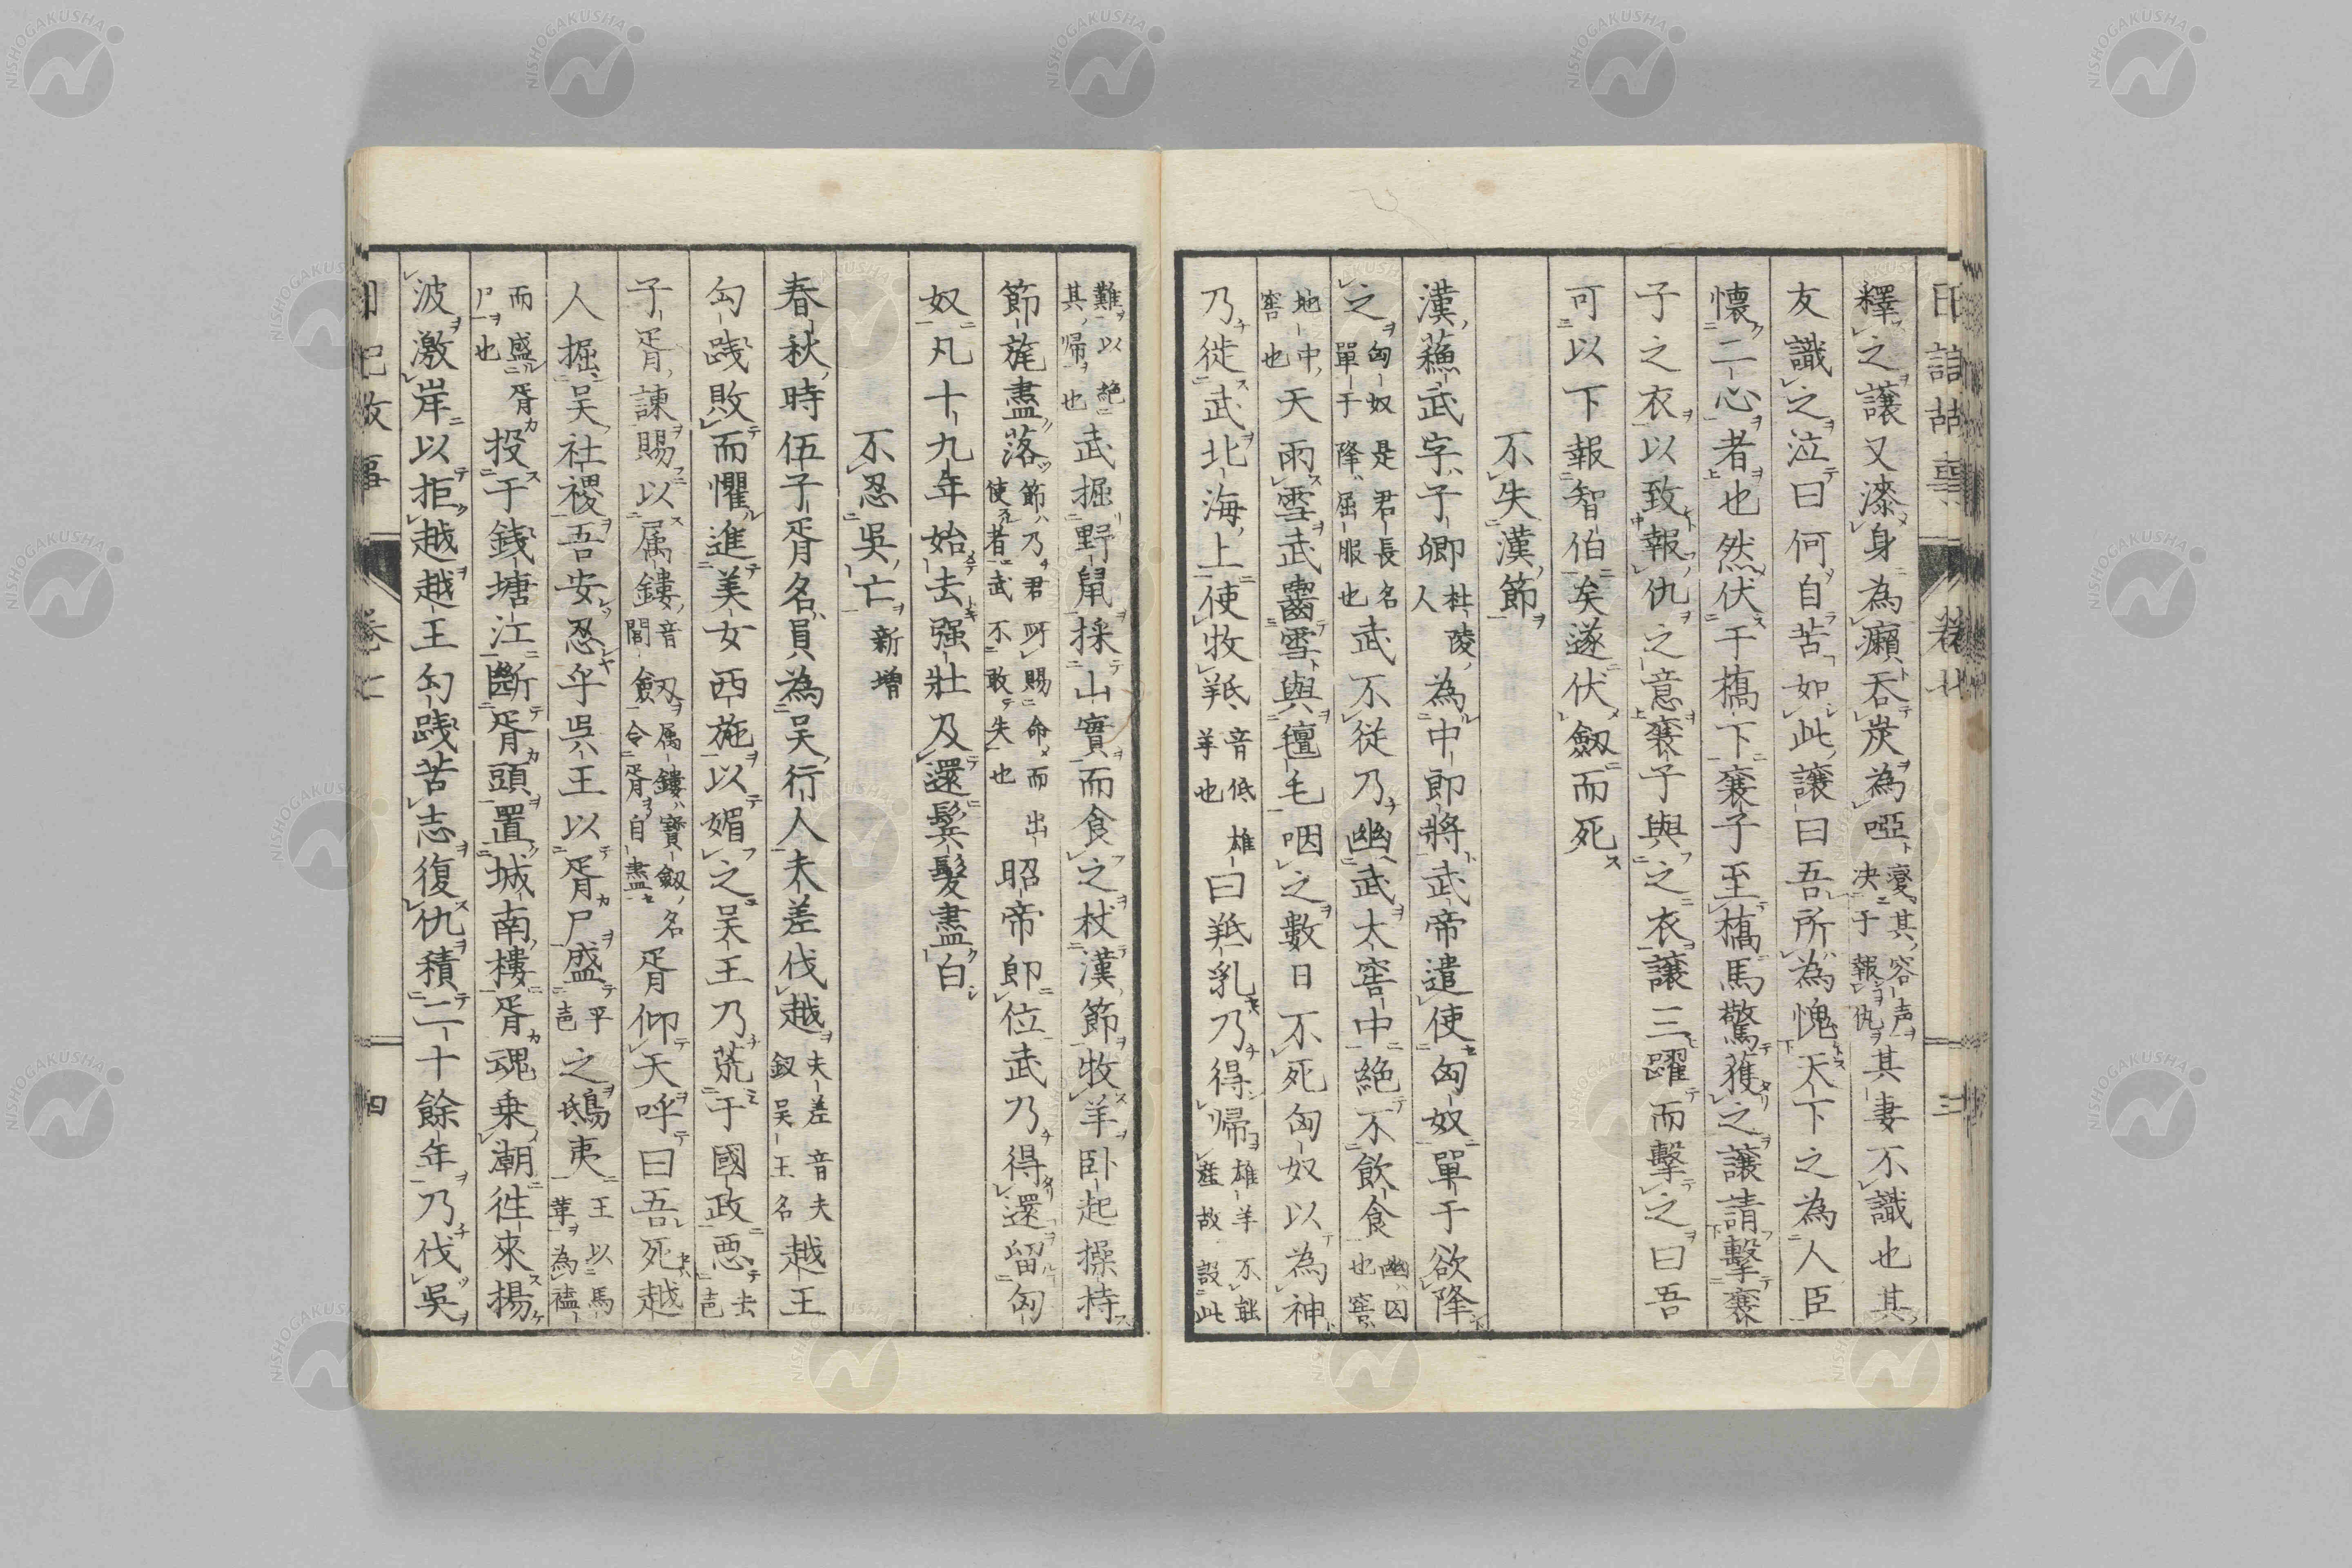 釋之譲又漆身為癩呑炭為啞變其容声決于報仇其妻不識也其
友識之泣曰何自苦如此譲曰吾所為愧天下之為人臣
懐二心者也然伏于橋下襄子至橋馬驚獲之譲請擊襄
子之衣以致報仇之意襄子與之衣譲三躍而擊之曰吾
可以下報智伯矣遂伏劔而死
不失漢節
漢蘓武字子卿杜陵人為中郎將武帝遣使匈奴單于欲降
之匈奴是君長名單于降屈服也武不従乃幽武大窖中絶不飲食幽囚也窖
地中窖也天雨雪武齧雪與氊毛咽之數日不死匈奴以為神
乃徙武北海上使牧羝音低羊也雄曰羝乳乃得帰雄羊不能産故設此
難以絶其帰也武掘野鼠採山實而食之杖漢節牧羊卧起操持
節旄盡落節乃君所賜命而出使者武不敢失也昭帝即位武乃得還留匈
奴凡十九年始去强壮及還鬂髮盡白
不忍吳亡新增
春秋時伍子胥名員為吴行人夫差伐越夫差音夫釵吴王名越王
勾踐敗而懼進美女西施以媚之吴王乃荒于國政惡去声
子胥諌賜以属鏤音閭劔属鏤寶劔名令胥自盡胥仰天呼曰吾死越
人掘吴社禝吾安忍乎吳王以胥尸盛平声之鴟夷王以馬革為榼
而盛尸也胥投于錢塘江斷胥頭置城南樓胥魂乗潮徃來揚
波激岸以拒越越王勾踐苦志復仇積二十餘年乃伐吳
日記故事 卷七 三
日記故事 卷七 四
NISHOGAKUSHA